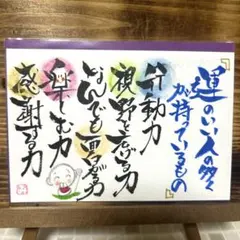 運のいい人の多くが
持っているもの
行動力
視野を広げる力
どんなことでも面白がる力
楽しむ力
感謝する力